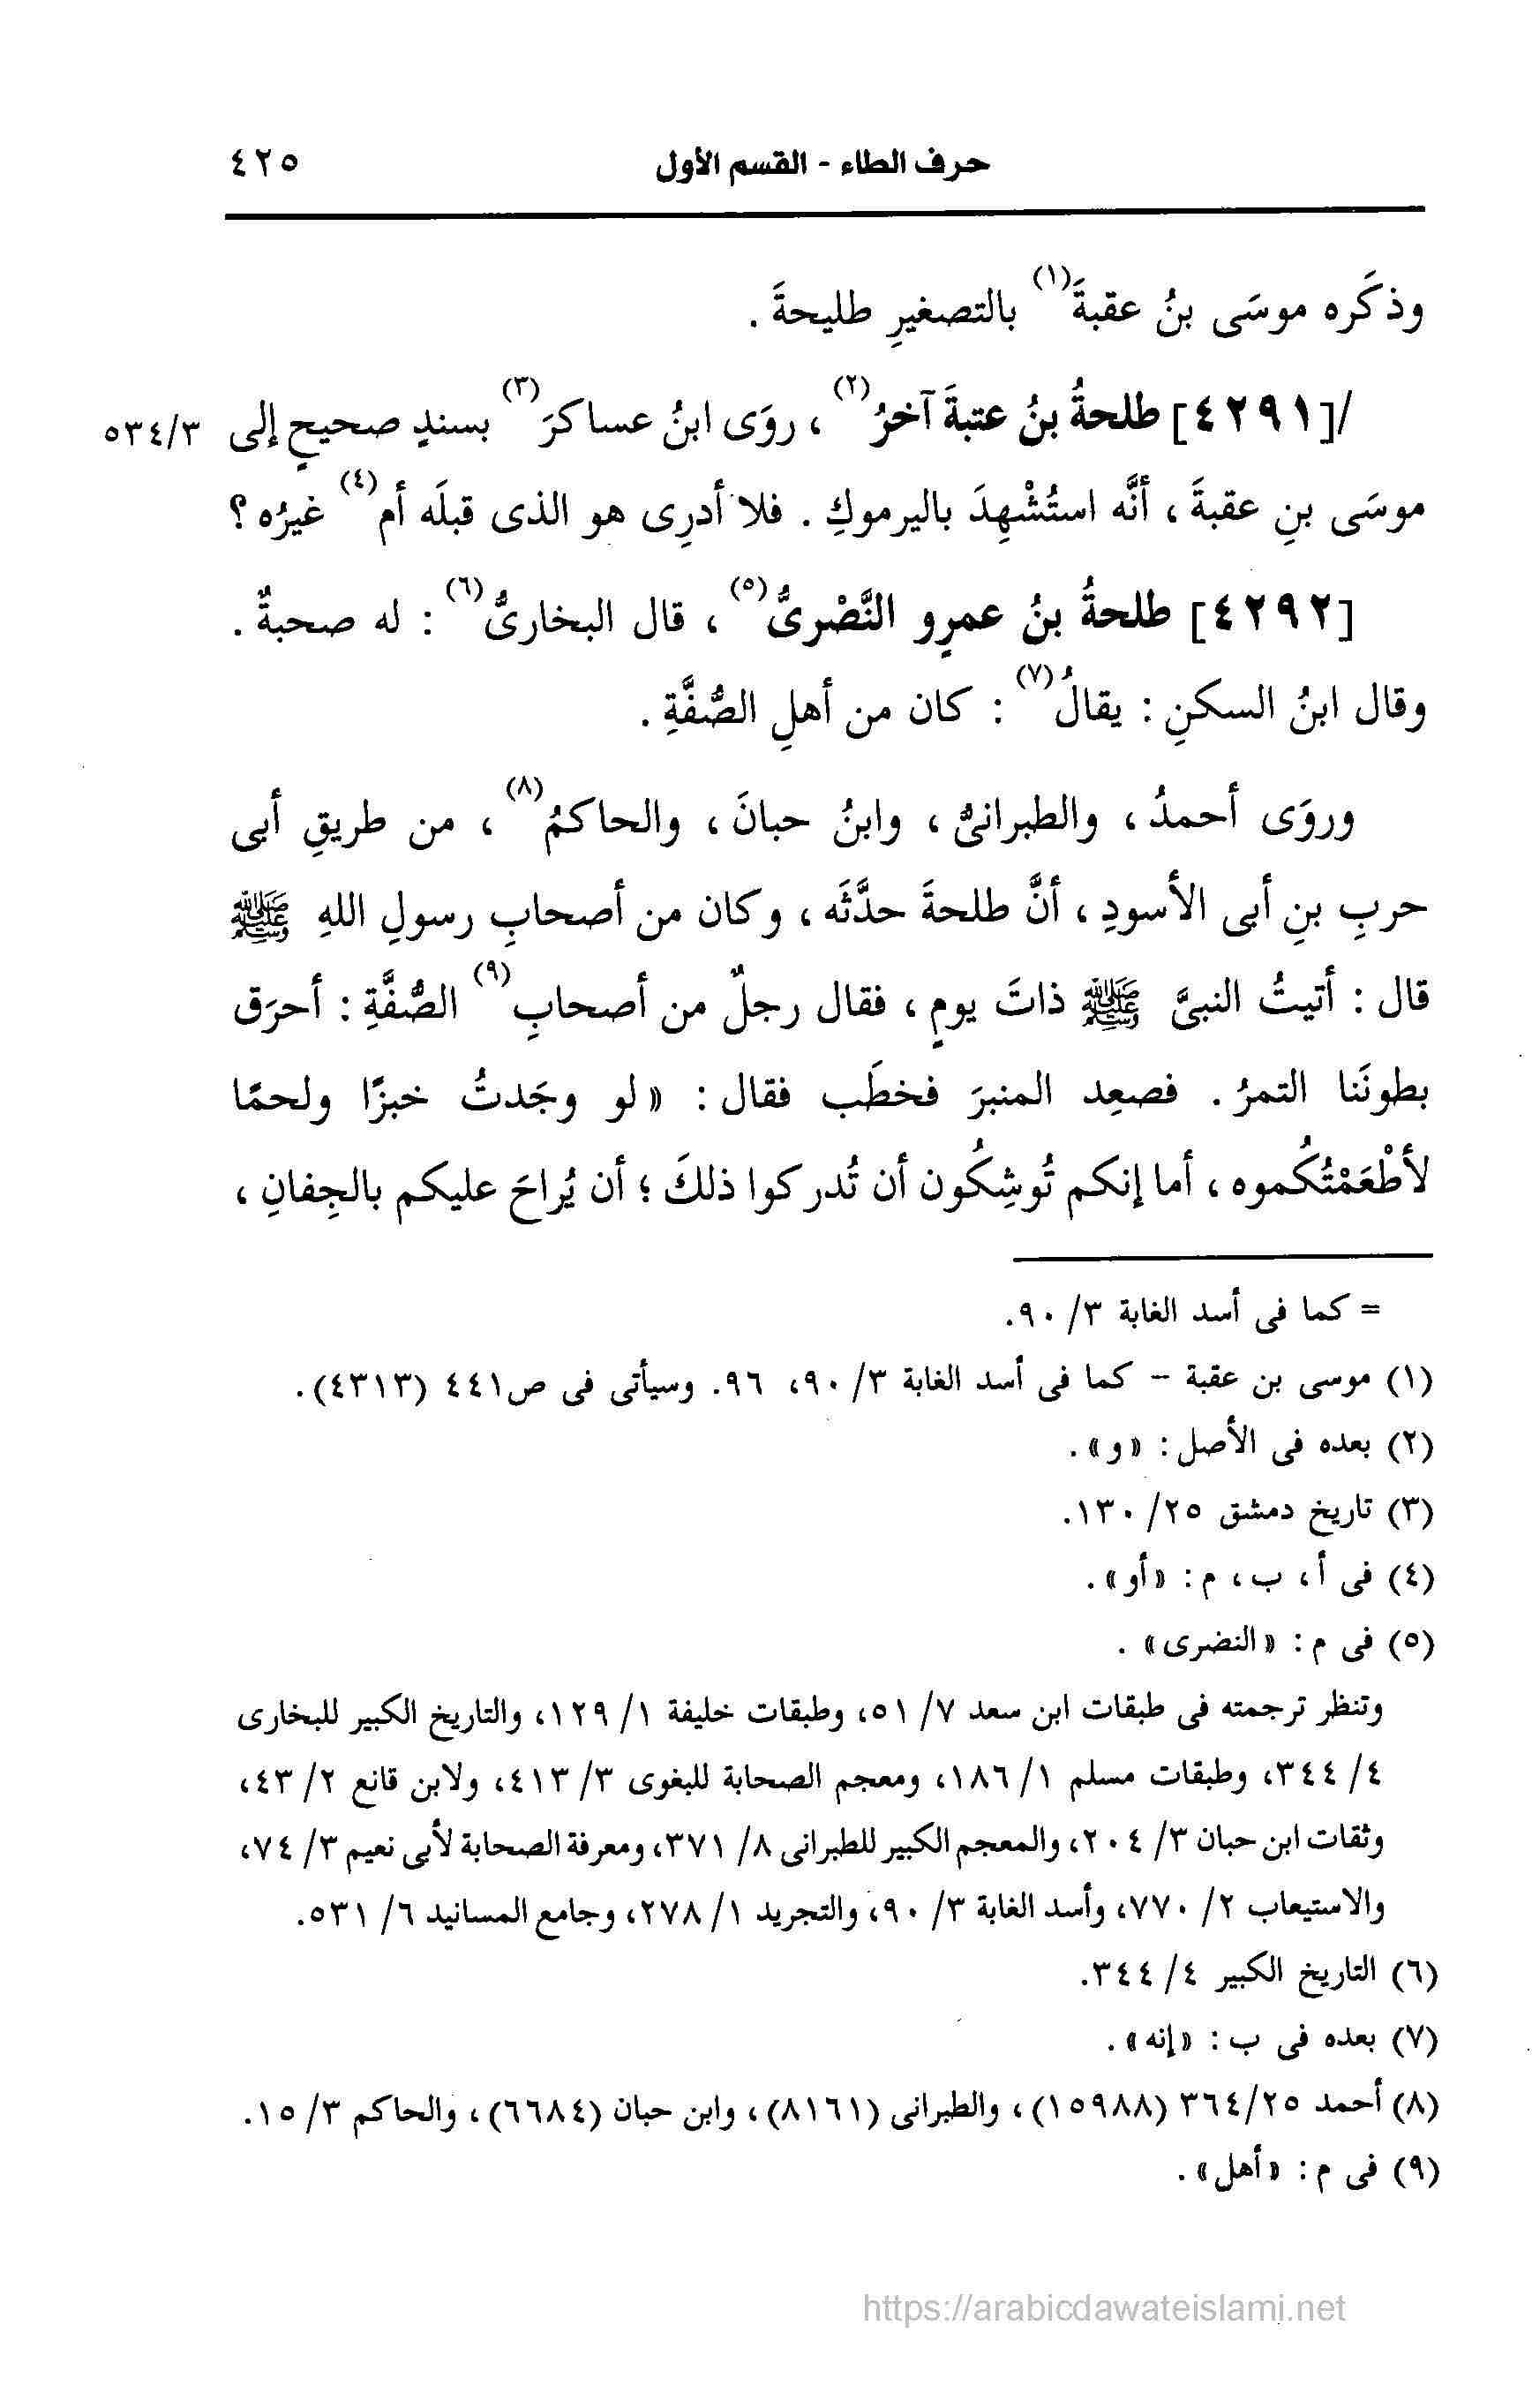 حرف الطاء - القسم الأول ٤٢٥
وذكَره موسَى بنُ عقبةَ(١) بالتصغيرِ طليحةَ .
/[٤٢٩١] طلحةُ بنُ عتبةَ آخرُ(٢) ، روَى ابنُ عساكرَ(٣) بسندٍ صحيحٍ إلى ٥٣٤/٣
موسَى بنِ عقبةَ ، أنَّه استُشْهِدَ باليرموكِ . فلا أدرِى هو الذى قبلَه أم(٤) غيرُه ؟
[٤٢٩٢] طلحةُ بنُ عمرٍو النَّصْرىُّ(٥) ، قال البخارىُّ(٦) : له صحبةٌ .
وقال ابنُ السكنِ : يقالُ(٧) : كان من أهلِ الصُّفَّةِ .
وروَى أحمدُ ، والطبرانىُّ ، وابنُ حبانَ ، والحاكمُ(٨) ، من طريقِ أبى
حربِ بنِ أبى الأسودِ ، أنَّ طلحةَ حدَّثَه ، وكان من أصحابِ رسولِ اللهِ ﷺ
قال : أتيتُ النبىَّ ﷺ ذاتَ يومٍ ، فقال رجلٌ من أصحابِ(٩) الصُّفَّةِ : أحرَق
بطونَنا التمرُ . فصعِد المنبرَ فخطَب فقال : « لو وجَدتُ خبزًا ولحمًا
لأطْعَمْتُكُموه ، أما إنكم تُوشِكُون أن تُدركوا ذلكَ ؛ أن يُراحَ عليكم بالجِفانِ ،
= كما فى أسد الغابة ٣/ ٩٠.
(١) موسى بن عقبة - كما فى أسد الغابة ٣/ ٩٠، ٩٦. وسيأتى فى ص٤٤١ (٤٣١٣).
(٢) بعده فى الأصل: «و».
(٣) تاريخ دمشق ٢٥/ ١٣٠.
(٤) فى أ، ب، م: «أو».
(٥) فى م: «النضرى» .
وتنظر ترجمته فى طبقات ابن سعد ٧/ ٥١، وطبقات خليفة ١/ ١٢٩، والتاريخ الكبير للبخارى
٤/ ٣٤٤، وطبقات مسلم ١/ ١٨٦، ومعجم الصحابة للبغوى ٣/ ٤١٣، ولابن قانع ٢/ ٤٣،
وثقات ابن حبان ٣/ ٢٠٤، والمعجم الكبير للطبرانى ٨/ ٣٧١، ومعرفة الصحابة لأبى نعيم ٣/ ٧٤،
والاستيعاب ٢/ ٧٧٠، وأسد الغابة ٣/ ٩٠، والتجريد ١/ ٢٧٨، وجامع المسانيد ٦/ ٥٣١.
(٦) التاريخ الكبير ٤/ ٣٤٤.
(٧) بعده فى ب: «إنه».
(٨) أحمد ٣٦٤/٢٥ (١٥٩٨٨)، والطبرانى (٨١٦١)، وابن حبان (٦٦٨٤)، والحاكم ٣/ ١٥.
(٩) فى م: «أهل».
https://arabicdawateislami.net